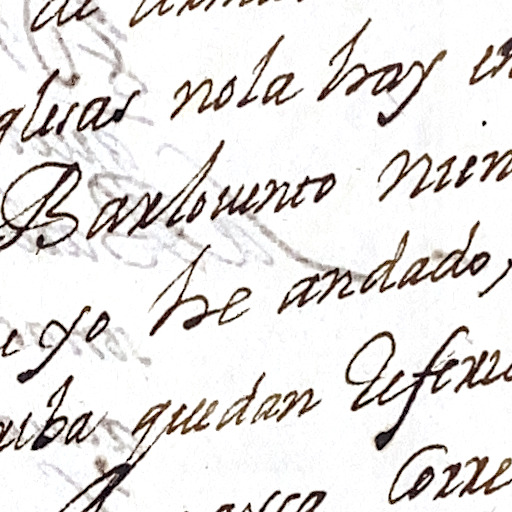 de
glesas nola hay en
Barlovento nien
e yo he andado,
riba quedan Refexi
Corre